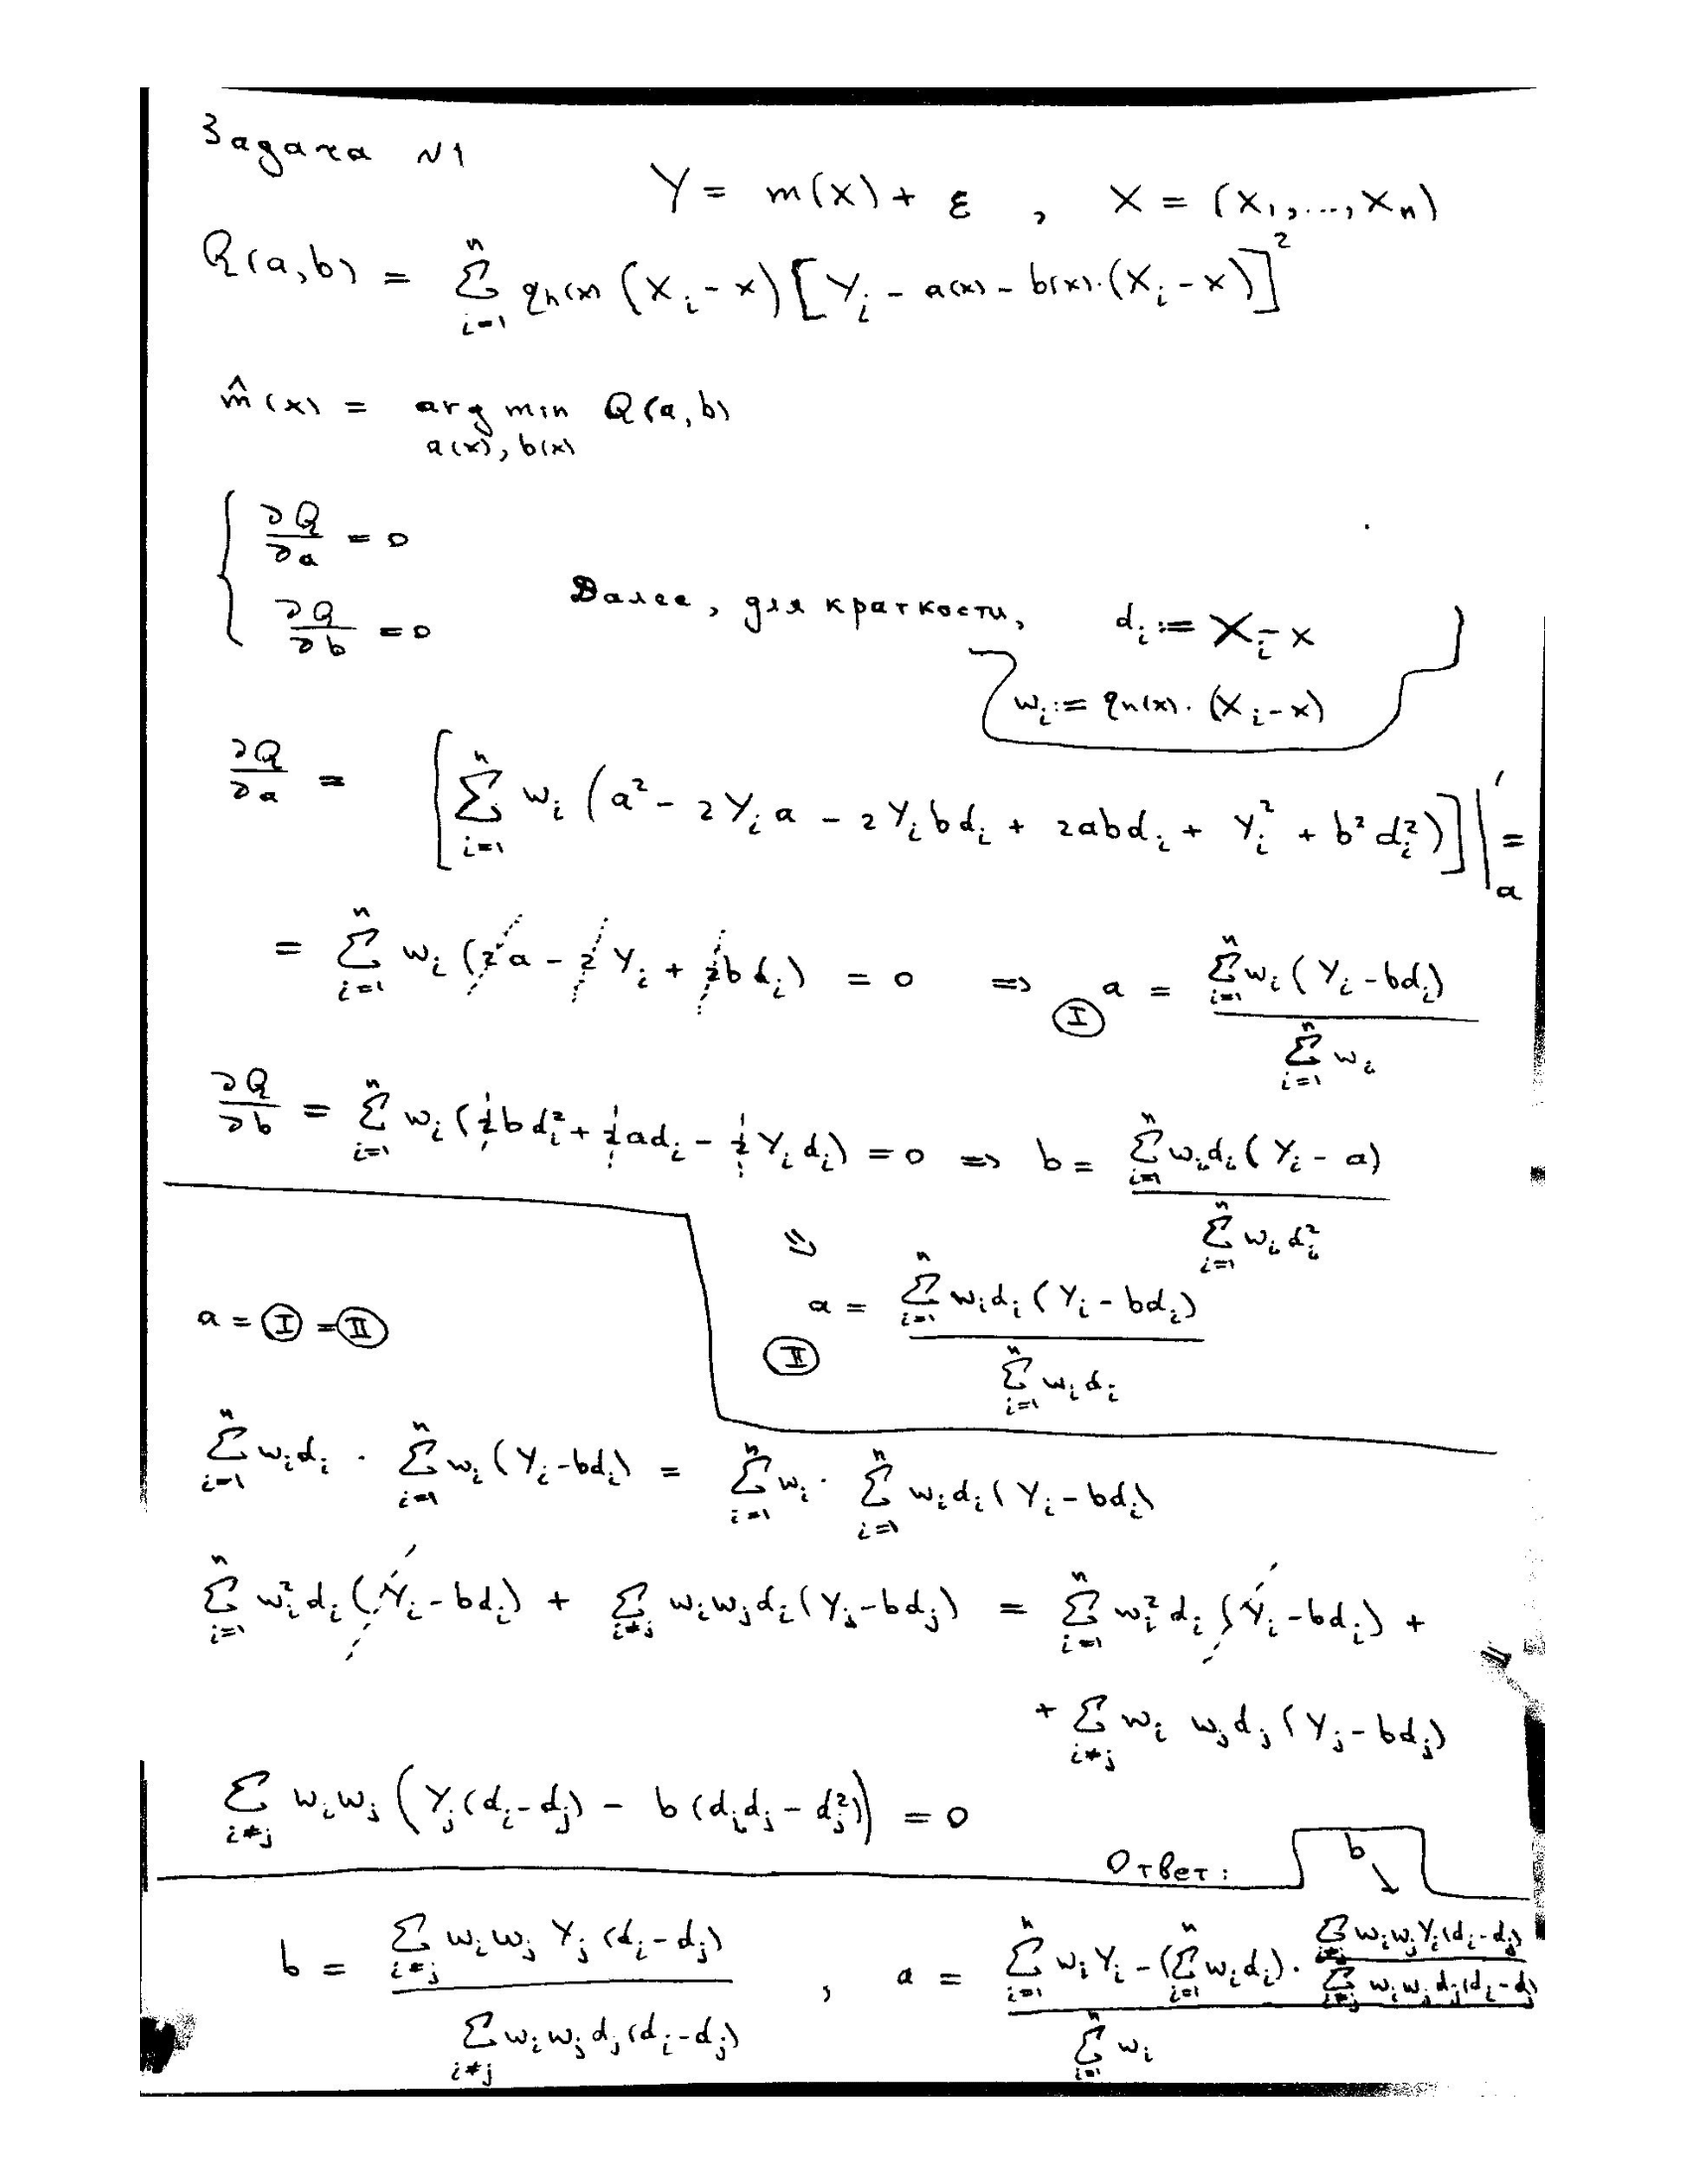 Задача N1
Y = m(x) + ε , X = (X₁,...,Xₙ)
Q(a,b) = ∑_{i=1}^{n} q_{h(x)} (X_i - x) [Y_i - a(x) - b(x)·(X_i - x)]²
m̂(x) = arg min_{a(x), b(x)} Q(a,b)
{ ∂Q/∂a = 0
∂Q/∂b = 0
Далее, для краткости, d_i := X_i - x
w_i := q_{h(x)}·(X_i - x)
∂Q/∂a = [∑_{i=1}^{n} w_i (a² - 2Y_i a - 2Y_i b d_i + 2abd_i + Y_i² + b² d_i²)]|'_a =
= ∑_{i=1}^{n} w_i (2a - 2Y_i + 2bd_i) = 0 ⇒ Ⓘ a = ∑_{i=1}^{n} w_i (Y_i - bd_i) / ∑_{i=1}^{n} w_i
∂Q/∂b = ∑_{i=1}^{n} w_i (2bd_i² + 2ad_i - 2Y_i d_i) = 0 ⇒ b = ∑_{i=1}^{n} w_i d_i (Y_i - a) / ∑_{i=1}^{n} w_i d_i²
⇓
(II) a = ∑_{i=1}^{n} w_i d_i (Y_i - bd_i) / ∑_{i=1}^{n} w_i d_i
a = (I) = (II)
∑_{i=1}^{n} w_i d_i · ∑_{i=1}^{n} w_i (Y_i - bd_i) = ∑_{i=1}^{n} w_i · ∑_{i=1}^{n} w_i d_i (Y_i - bd_i)
∑_{i=1}^{n} w_i² d_i (Y_i - bd_i) + ∑_{i≠j} w_i w_j d_i (Y_j - bd_j) = ∑_{i=1}^{n} w_i² d_i (Y_i - bd_i) +
+ ∑_{i≠j} w_i w_j d_j (Y_j - bd_j)
∑_{i≠j} w_i w_j (Y_j (d_i - d_j) - b (d_i d_j - d_j²)) = 0
Ответ: b ↘
b = ∑_{i≠j} w_i w_j Y_j (d_i - d_j) / ∑_{i≠j} w_i w_j d_j (d_i - d_j) , a = (∑_{i=1}^{n} w_i Y_i - (∑_{i=1}^{n} w_i d_i) · ∑_{i≠j} w_i w_j Y_j (d_i - d_j) / ∑_{i≠j} w_i w_j d_j (d_i - d_j)) / ∑_{i=1}^{n} w_i